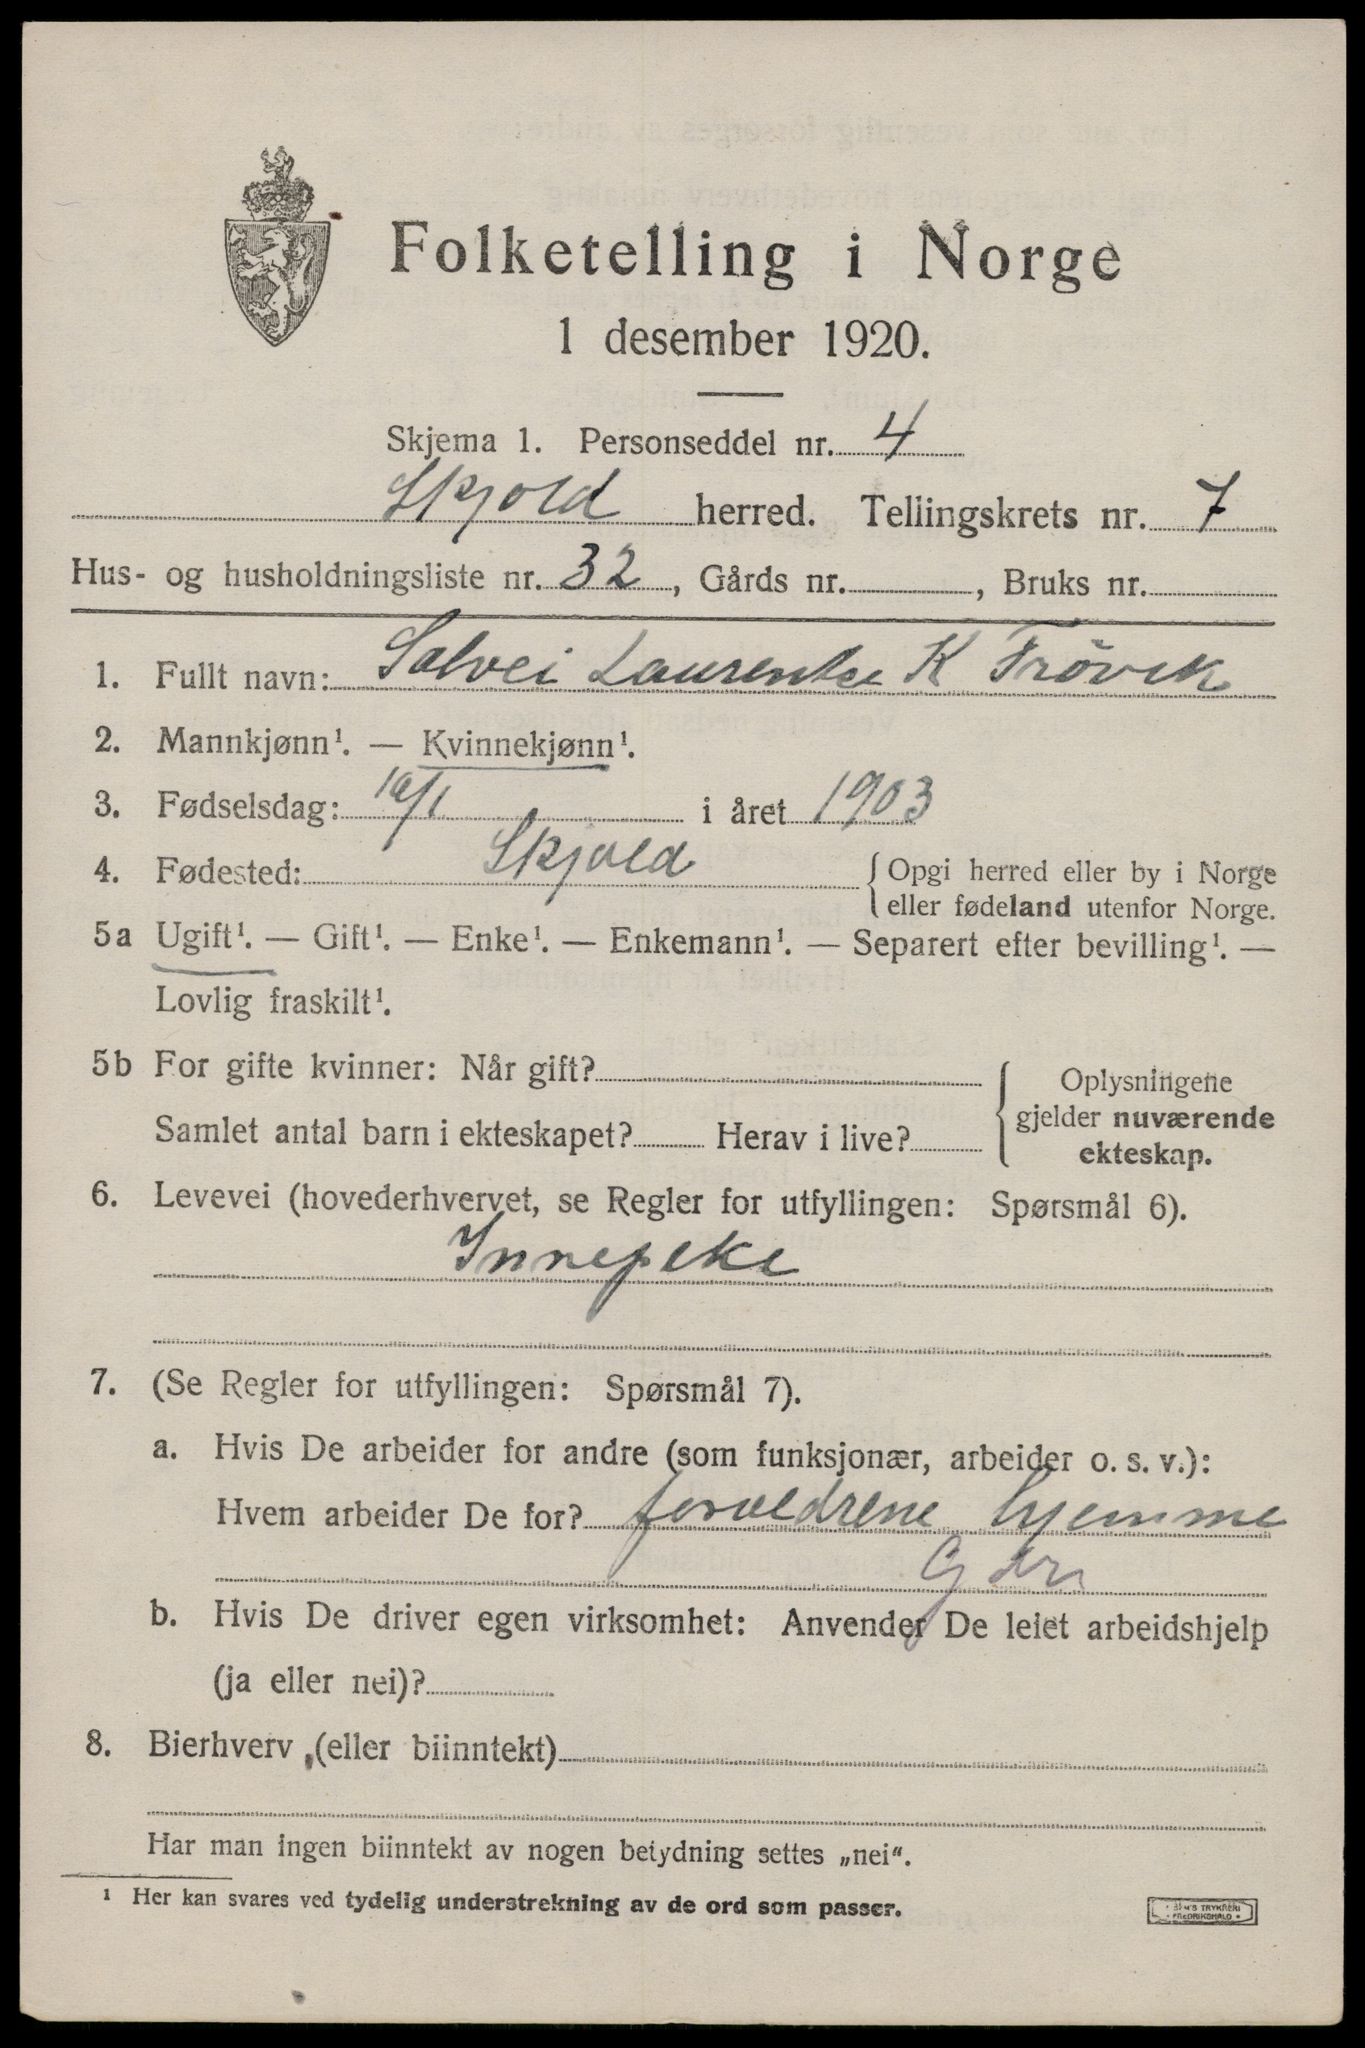 Folketelling i Norge
1 desember 1920.
Skjema 1. Personseddel nr. 4
Skjold herred. Tellingskrets nr. 7
Hus- og husholdningsliste nr. 32, Gårds nr. , Bruks nr.
1. Fullt navn: Solvei Laurentse K Frövik
2. Mannkjønn¹. — Kvinnekjønn¹.
3. Fødselsdag: 10/1 i året 1903
4. Fødested: Skjold { Opgi herred eller by i Norge
eller fødeland utenfor Norge.
5a Ugift¹. — Gift¹. — Enke¹. — Enkemann¹. — Separert efter bevilling¹. —
Lovlig fraskilt¹.
5b For gifte kvinner: Når gift? { Oplysningene
gjelder nuværende
Samlet antal barn i ekteskapet? Herav i live?
ekteskap.
6. Levevei (hovederhvervet, se Regler for utfyllingen: Spørsmål 6).
Innepike
7. (Se Regler for utfyllingen: Spørsmål 7).
a. Hvis De arbeider for andre (som funksjonær, arbeider o. s. v.):
Hvem arbeider De for? foreldrene hjemme
b. Hvis De driver egen virksomhet: Anvender De leiet arbeidshjelp
(ja eller nei)?
8. Bierhverv (eller biinntekt)
Har man ingen biinntekt av nogen betydning settes „nei“.
¹ Her kan svares ved tydelig understrekning av de ord som passer.
TRYKKERI
FREDRIKSHALD